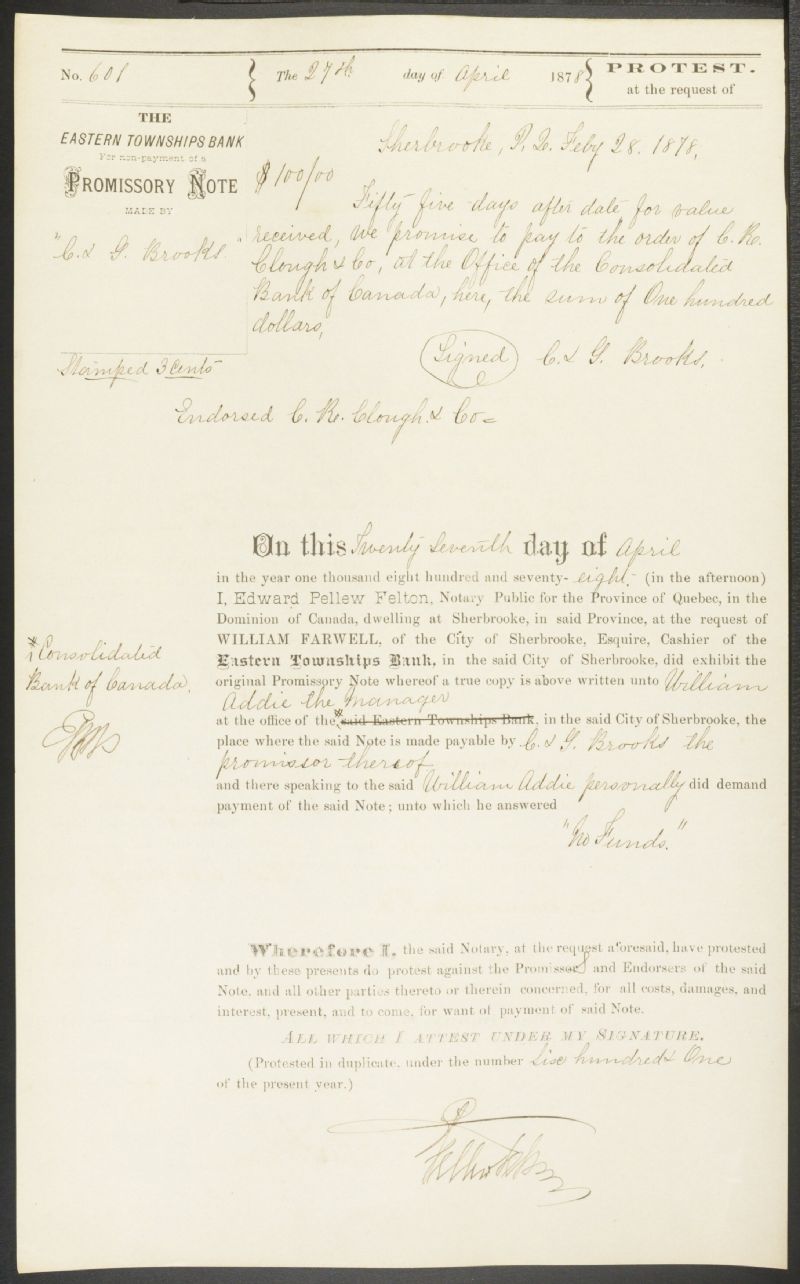 No. 601 The 27th day of April 1878 PROTEST.
at the request of
THE
EASTERN TOWNSHIPS BANK
For non-payment of a
PROMISSORY NOTE
MADE BY
"C. & G. Brooks."
Stamped 3 Cents
Sherbrooke, P. Q. Feby 28. 1878,
$100/00
Fifty five days after date for value
received, we promise to pay to the order of C. R.
Clough & Co, at the Office of the Consolidated
Bank of Canada, here, the sum of One hundred
dollars,
(Signed) C. & G. Brooks,
Endorsed C. R. Clough. & Co=
On this Twenty Seventh day of April
in the year one thousand eight hundred and seventy- eight,- (in the afternoon)
I, Edward Pellew Felton, Notary Public for the Province of Quebec, in the
Dominion of Canada, dwelling at Sherbrooke, in said Province, at the request of
WILLIAM FARWELL, of the City of Sherbrooke, Esquire, Cashier of the
Eastern Townships Bank, in the said City of Sherbrooke, did exhibit the
original Promissory Note whereof a true copy is above written unto William
Addie the Manager
at the office of the * said Eastern Townships Bank, in the said City of Sherbrooke, the
place where the said Note is made payable by C. & G. Brooks the
promissor thereof
and there speaking to the said William Addie personally did demand
payment of the said Note; unto which he answered
"No Funds."
* Consolidated
Bank of Canada,
Wherefore I, the said Notary, at the request aforesaid, have protested
and by these presents do protest against the Promissors and Endorsers of the said
Note, and all other parties thereto or therein concerned, for all costs, damages, and
interest, present, and to come, for want of payment of said Note.
ALL WHICH I ATTEST UNDER MY SIGNATURE.
(Protested in duplicate, under the number Six hundred & One
of the present year.)